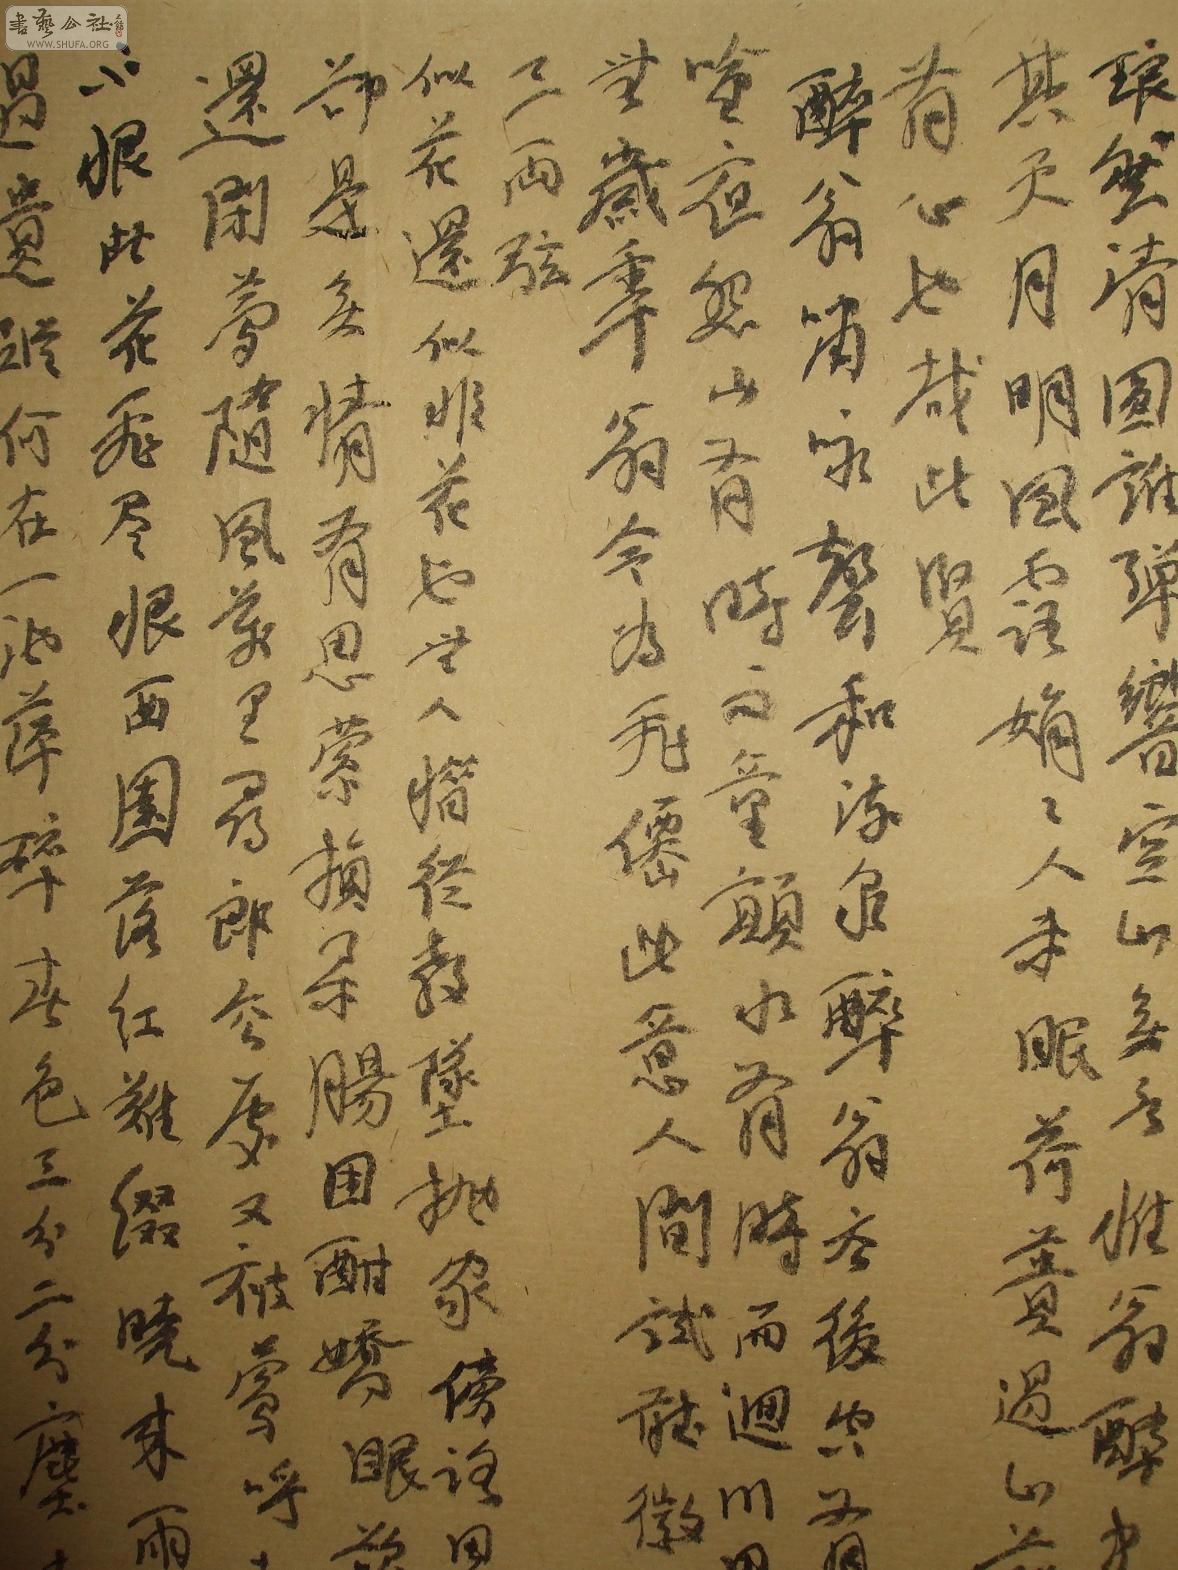 琅然清圓誰彈響空山無言惟翁醉中
其天月明風露娟〻人未眠荷蕢過山前
有心也哉此賢
醉翁嘯咏聲和流泉醉翁去後空有
吟夜怨山有時而童顛水有時而迴川思
無歲年翁今為飛僊此意人間試聽徽
三兩弦
似花還似非花也無人惜從教墜拋家傍路思
却是無情有思縈損柔腸困酣嬌眼欲
還閉夢隨風萬里尋郎去處又被鶯呼
不恨此花飛尽恨西園落紅難綴曉來雨
過遺蹤何在一池萍碎春色三分二分塵土
書藝公社
WWW.SHUFA.ORG